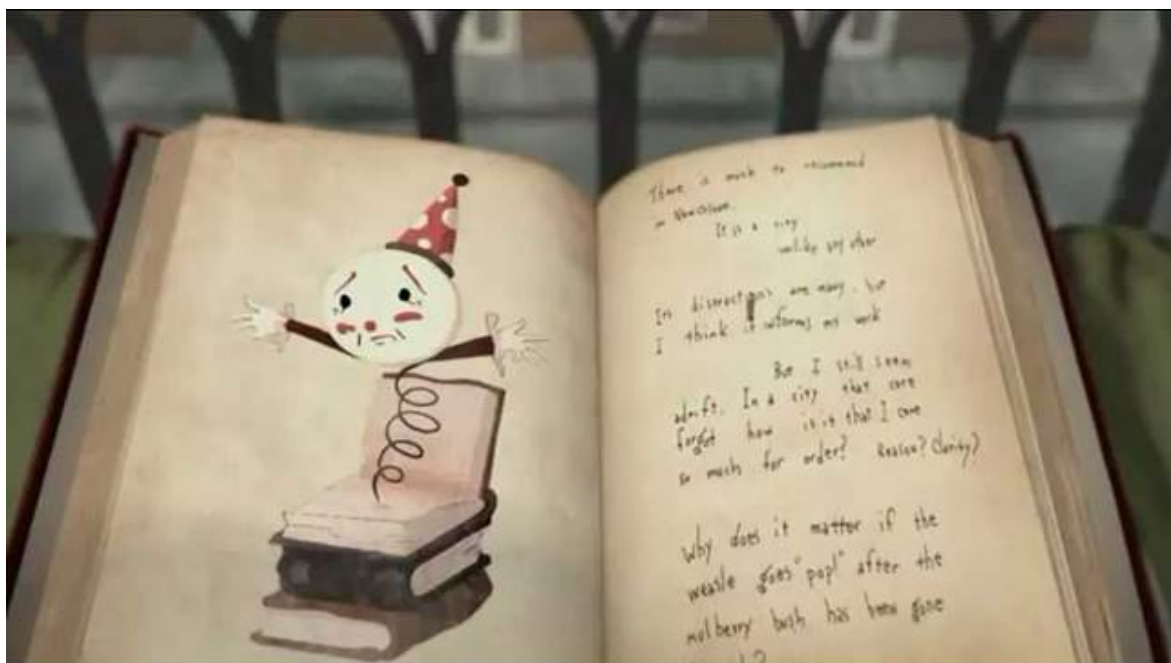 There is much to recommend
in New Orleans.
It is a city
unlike any other
Its distractions are many. but
I think it informs my work
But I still seem
adrift. In a city that care
forgot how is it that I care
so much for order? Reason? Clarity?
Why does it matter if the
weasle goes "pop!" after the
mulberry bush has been gone